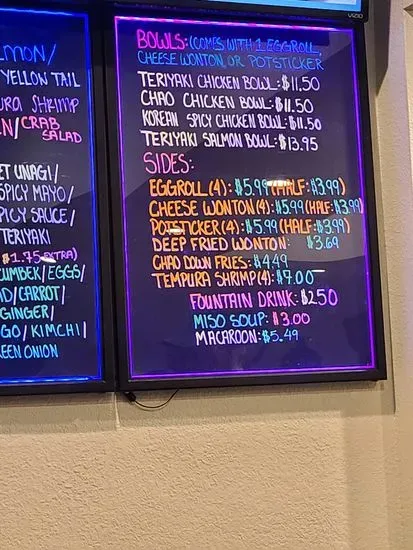 VIZIO
LMON/
YELLOW TAIL
URA SHRIMP
N/CRAB
SALAD
ET UNAGI/
SPICY MAYO/
PICY SAUCE/
TERIYAKI
$1.75 EXTRA)
CUMBEK/EGGS/
AD/CARROT/
GINGER/
GO/KIMCHI/
REEN ONION
BOWLS:(COMES WITH 1 EGGROLL,
CHEESE WONTON OR POTSTICKER
TERIYAKI CHICKEN BOWL:$11.50
CHAO CHICKEN BOWL:$11.50
KOREAN SPICY CHICKEN BOWL:$11.50
TERIYAKI SALMON BOWL:$13.95
SIDES:
EGGROLL(4):$5.99(HALF:$3.99)
CHEESE WONTON(4):$5.99(HALF:$3.99)
POTSTICKER(4):$5.99(HALF:$3.99)
DEEP FRIED WONTON: $3.69
CHAO DOWN FRIES:$4.49
TEMPURA SHRIMP(4):$7.00
FOUNTAIN DRINK:$2.50
MISO SOUP:$3.00
MACAROON:$5.49